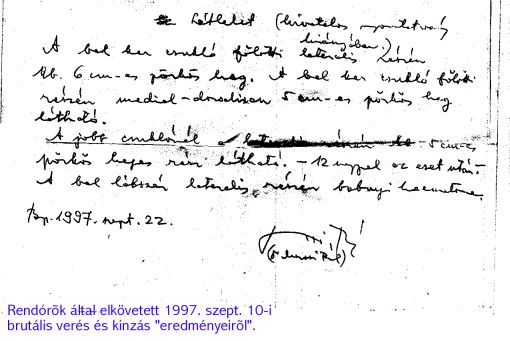 Látlelet (hivatalos nyomtatvány
hiányában.)
A bal kar csukló fölötti laterális részén
kb. 6 cm-es pörkös heg. A bal kar csukló fölötti
részén medial-dorsalisan 5 cm-es pörkös heg
látható.
A jobb csuklónál 5 cm-es
pörkös heges rész látható. - 12 nappal az eset után. -
A bal lábszár laterális részén babnyi haematoma.
Bp. 1997. szept. 22.
Rendőrök által elkövetett 1997. szept. 10-i
brutális verés és kínzás "eredményeiről".